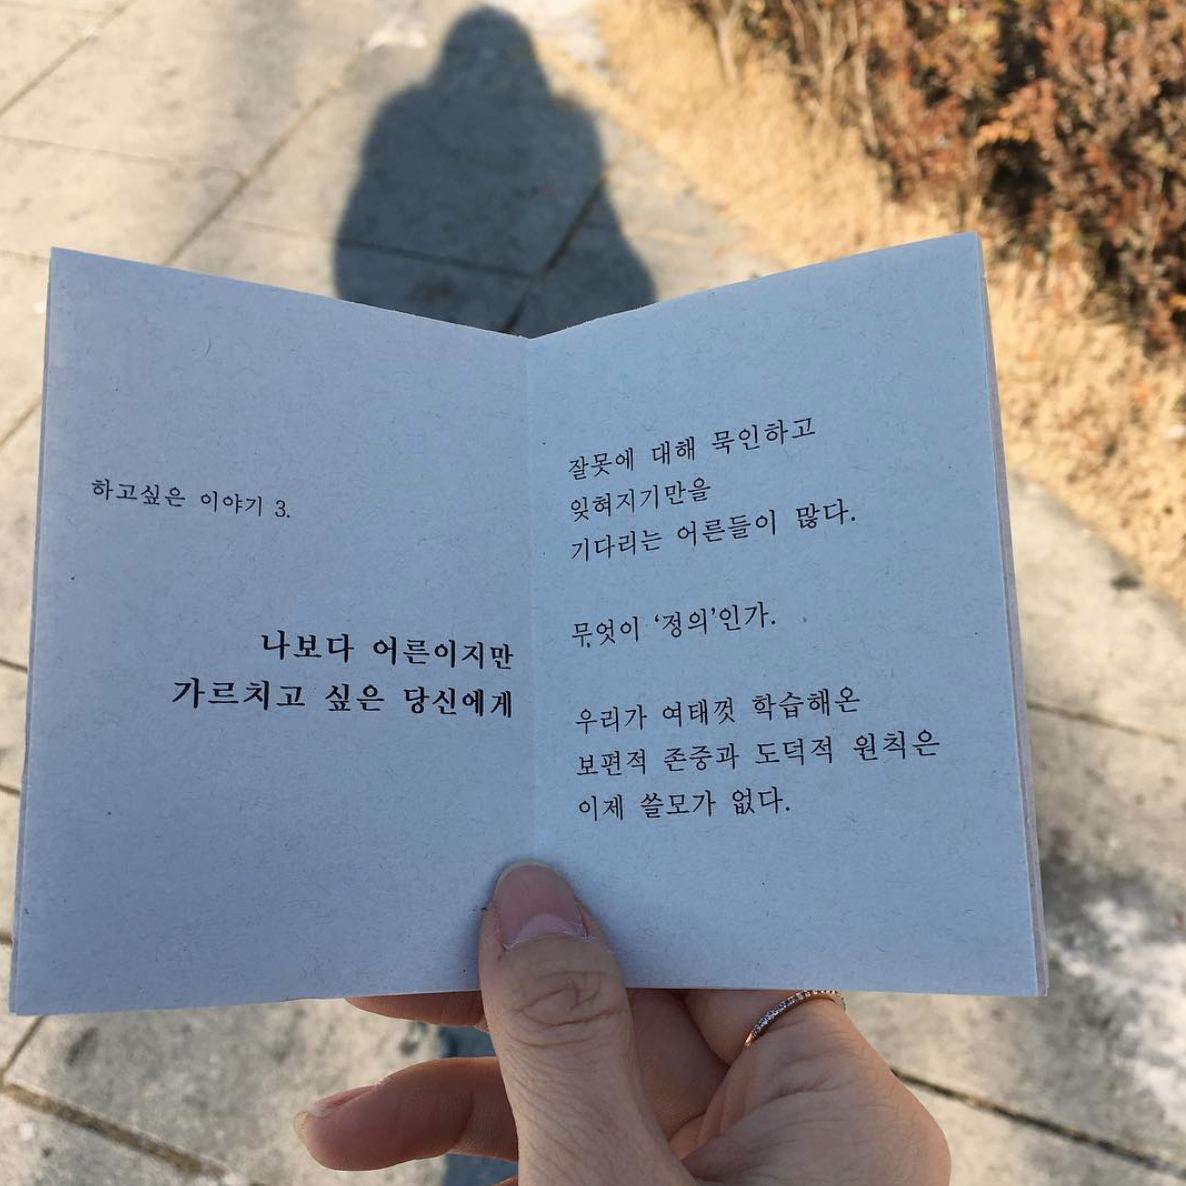 하고싶은 이야기 3.
나보다 어른이지만
가르치고 싶은 당신에게
잘못에 대해 묵인하고
잊혀지기만을
기다리는 어른들이 많다.
무엇이 ‘정의’인가.
우리가 여태껏 학습해온
보편적 존중과 도덕적 원칙은
이제 쓸모가 없다.